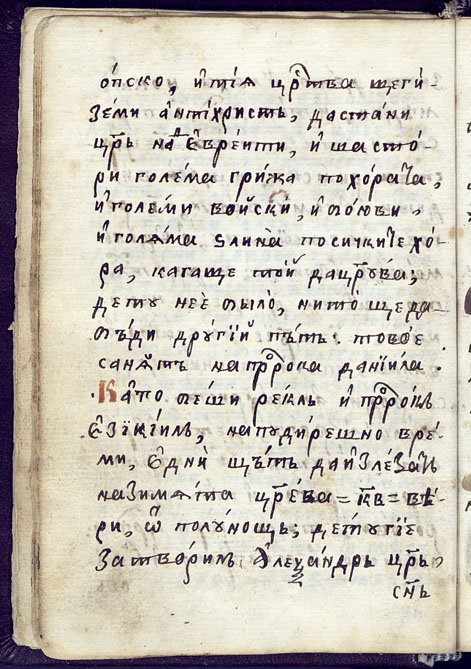 ѻпско, и тїѧ цр҃тва щеги
земи антїхристь, да стани
цр҃ь на є҆вреити, и ща ство-
ри голема грижа по хората,
и големи войски, и боюви,
и голѧма злина по сичките хо-
ра, кагаще той да цр҃ува,
дету нее было, нито ще да
бъди другїй пѫть. товȣ е
санѧтъ на прⷪ҇рока данїила.
Като беши рекль и прⷪ҇рокъ
єзїкїиль, на пудирешно вре-
ми, єдни щѫть да излѣзатъ
на зимѧта цр҃ева = кв = ве-
ри, ѿ полунощь, дету гїе
затворилъ алеѯандрь цр҃ь,
сн҃ь